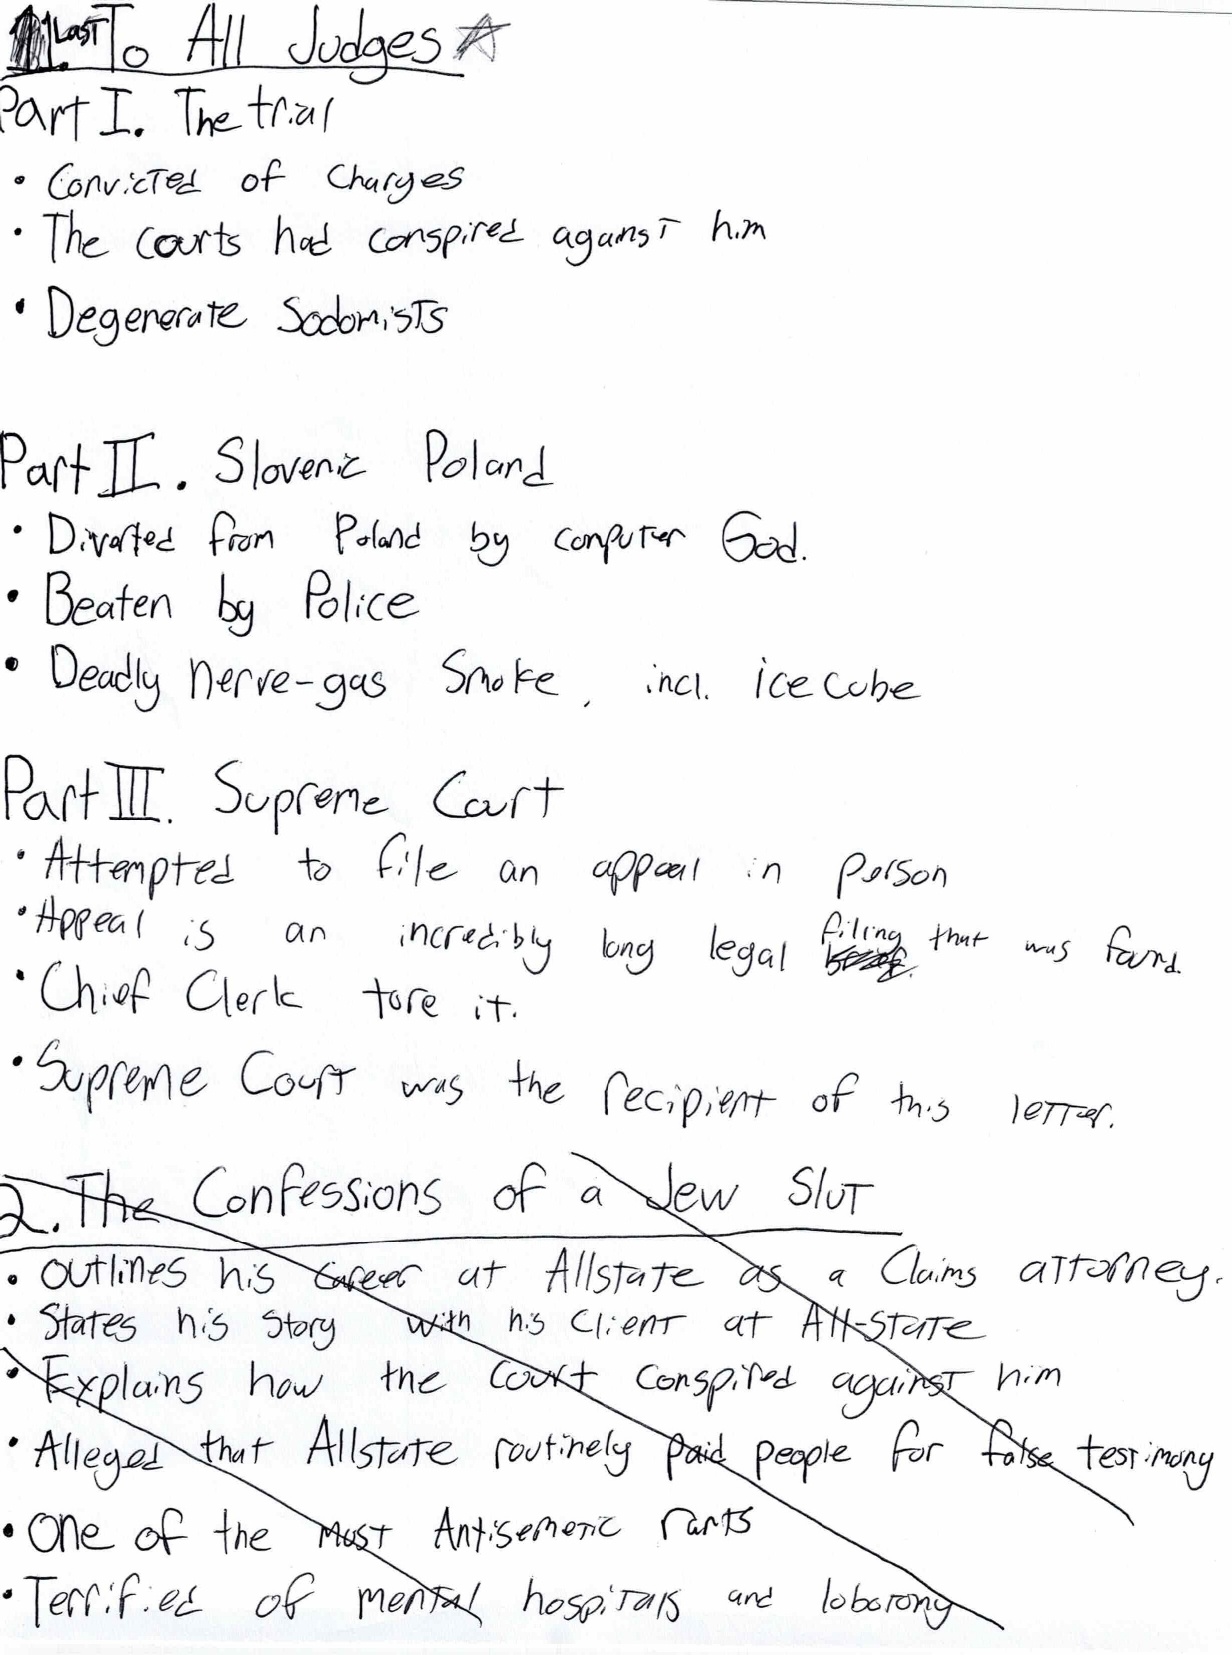 11. Last To All Judges
Part I. The trial
• Convicted of Charges
• The courts had conspired against him
• Degenerate Sodomists
Part II. Slovenic Poland
• Diverted from Poland by computer God.
• Beaten by Police
• Deadly nerve-gas Smoke, incl. ice cube
Part III. Supreme Court
• Attempted to file an appeal in person
• Appeal is an incredibly long legal filing that was found.
• Chief Clerk tore it.
• Supreme Court was the recipient of this letter.
2. The Confessions of a Jew Slut
• Outlines his career at Allstate as a Claims attorney.
• States his story with his client at All-state
• Explains how the court conspired against him
• Alleged that Allstate routinely paid people for false testimony
• One of the most Antisemetic rants
• Terrified of mental hospitals and lobotomy